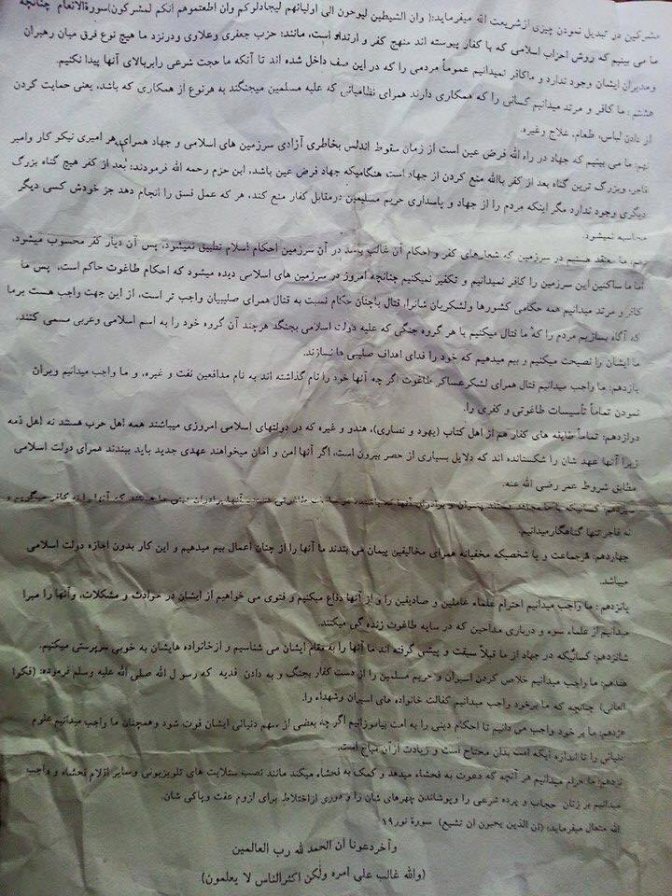 مشرکین در تبدیل نمودن چیزی ازشریعت الله میفرماید:( وان الشیطین لیوحون الی اولیائهم لیجادلوکم وان اطعتموهم انکم لمشرکون)سورةالانعام چنانچه
ما می بینیم که روش احزاب اسلامی که با کفار پیوسته اند منهج کفر و ارتداد است، مانند: حزب جعفری وعلاوی ودرنزد ما هیچ نوع فرق میان رهبران
ومدیران ایشان وجود ندارد و ماکافر نمیدانیم عموماً مردمی را که در این صف داخل شده اند تا آنکه ما حجت شرعی رابربالای آنها پیدا نکنیم.
هشتم: ما کافر و مرتد میدانیم کسانی را که همکاری دارند همرای نظامیانی که علیه مسلمین میجنگند به هرنوع از همکاری که باشد، یعنی حمایت کردن
از دادن لباس، طعام، علاج وغیره.
نهم: ما می بینیم که جهاد در راه الله فرض عین است از زمان سقوط اندلس بخاطری آزادی سرزمین های اسلامی و جهاد همرای هر امیری نیکو کار وامیر
فاجر، وبزرگ ترین گناه بعد از کفر باالله منع کردن از جهاد است هنگامیکه جهاد فرض عین باشد، ابن حزم رحمه الله فرمودند: بعد از کفر هیچ گناه بزرگ
دیگری وجود ندارد مگر اینکه مردم را از جهاد و پاسداری حریم مسلیمین درمقابل کفار منع کند، هر که عمل فسق را انجام دهد جز خودش کسی دیگر
محاسبه نمیشود.
دهم: ما معتقد هستیم در سرزمین که شعارهای کفر و احکام آن غالب باشد در آن سرزمین احکام اسلام تطبیق نمیشود، پس آن دیار کفر محسوب میشود،
اما ما ساکنین این سرزمین را کافر نمیدانیم و تکفیر نمیکنیم چنانچه امروز در سرزمین های اسلامی دیده میشود که احکام طاغوت حاکم است، پس ما
کافر و مرتد میدانیم همه حکامی کشورها ولشکریان شانرا، قتال باچنان حکام نسبت به قتال همرای صلیبیان واجب تر است، از این جهت واجب هست برما
که آگاه بسازیم مردم را که ما قتال میکنیم با هر گروه جنگی که علیه دولت اسلامی بجنگد هرچند آن گروه خود را به اسم اسلامی وعربی مسمی کنند،
ما ایشان را نصیحت میکنیم و بیم میدهیم که خود را فدای اهداف صلیبی ها نسازند.
یازدهم: ما واجب میدانیم قتال همرای لشکرعساکر طاغوت اگر چه آنها خود را نام گذاشته اند به نام مدافعین نفت و غیره، و ما واجب میدانیم ویران
نمودن تماماً تأسیسات طاغوتی و کفری را.
دوازدهم: تماماً طایفه های کفار هم از اهل کتاب (یهود و نصاری)، هندو و غیره که در دولتهای اسلامی امروزی میباشند همه اهل حرب هستند نه اهل ذمه
زیرا آنها عهد شان را شکستانده اند که دلایل بسیاری از حصر بیرون است، اگر آنها امن و امان میخواهند عهدی جدید باید ببندند همرای دولت اسلامی
مطابق شروط عمر رضی الله عنه.
سیزدهم: کسانیکه با ما
نه فاجر تنها گناهگارمیدانیم.
چهاردهم: هرجماعت و یا شخصیکه مخفیانه همرای مخالفین پیمان می بندند ما آنها را از چنان اعمال بیم میدهیم و این کار بدون اجازه دولت اسلامی
میباشد.
پانزدهم: ما واجب میدانیم احترام علماء عاملین و صادقین را و از آنها دفاع میکنیم و فتوی می خواهیم از ایشان در حوادث و مشکلات، وآنها را مبرا
میدانیم از علماء سوء و درباری مداحین که در سایه طاغوت زنده گی میکنند.
شانزدهم: کسانیکه در جهاد از ما قبلاً سبقت و پیشی گرفته اند ما آنها را به مقام ایشان می شناسیم و ازخانواده هایشان به خوبی سرپرستی میکنیم.
هفدهم: ما واجب میدانیم خلاص کردن اسیران و حریم مسلمین را از دست کفار بجنگ و به دادن فدیه که رسول الله صلی الله علیه وسلم فرموده: (فکوا
العانی) چنانچه که ما برخود واجب میدانیم کفالت خانواده های اسیران وشهداء را.
هژدهم: ما بر خود واجب می دانیم تا احکام دینی را به امت بیاموزانیم اگر چه بعضی از سهم دنیائی ایشان فوت شود وهمچنان ما واجب میدانیم علوم
دنیائی را تا اندازه ایکه امت بدان محتاج است و زیادت از آن مباح است.
نزدهم: ما حرام میدانیم هر آنچه که دعوت به فحشاء میدهد و کمک به فحشاء میکند مانند نصب ستلایت های تلویزیونی وسایر اقلام فحشاء و واجب
میدانیم بر زنان حجاب و پرده شرعی را وپوشاندن چهرهای شان را و دوری ازاختلاط برای لزوم عفت وپاکی شان.
الله متعال میفرماید: (ان الذین یحبون ان تشیع) سورة نور۱۹
وآخردعونا ان الحمد لله رب العالمین
(والله غالب علی امره ولکن اکثرالناس لا یعلمون)